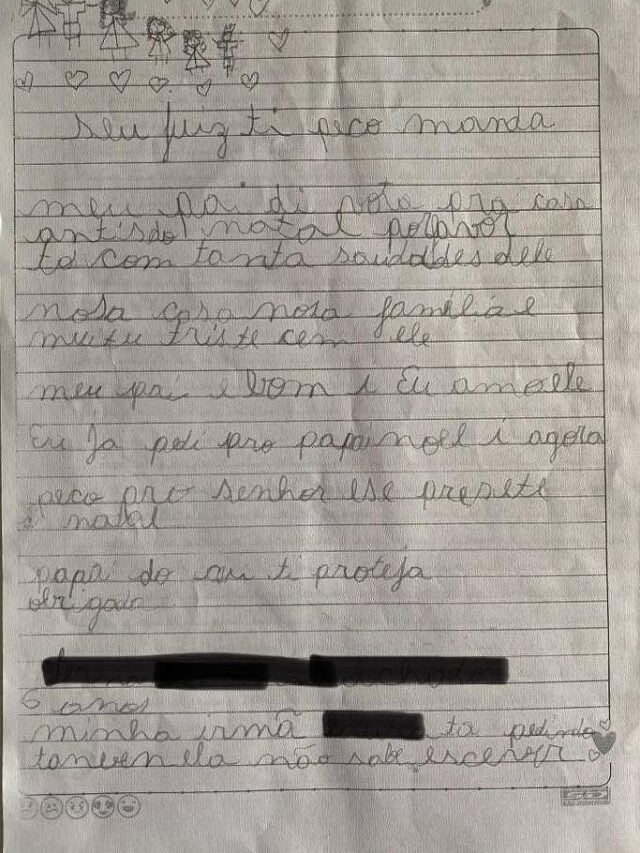 seu juiz ti peco manda
meu pai di vota pra casa
antisdo natal porfavor
to com tanta saudades dele
nosa casa nosa familia e
muitu triste cem ele
meu pai e bom i Eu amo ele
Eu Ja pedi pro papai noel i agora
peco pro senhor ese presete
di natal
papai do ceu ti proteja
obrigada
6 anos
minha irmã ta pedindo
tanven ela não sabe escever